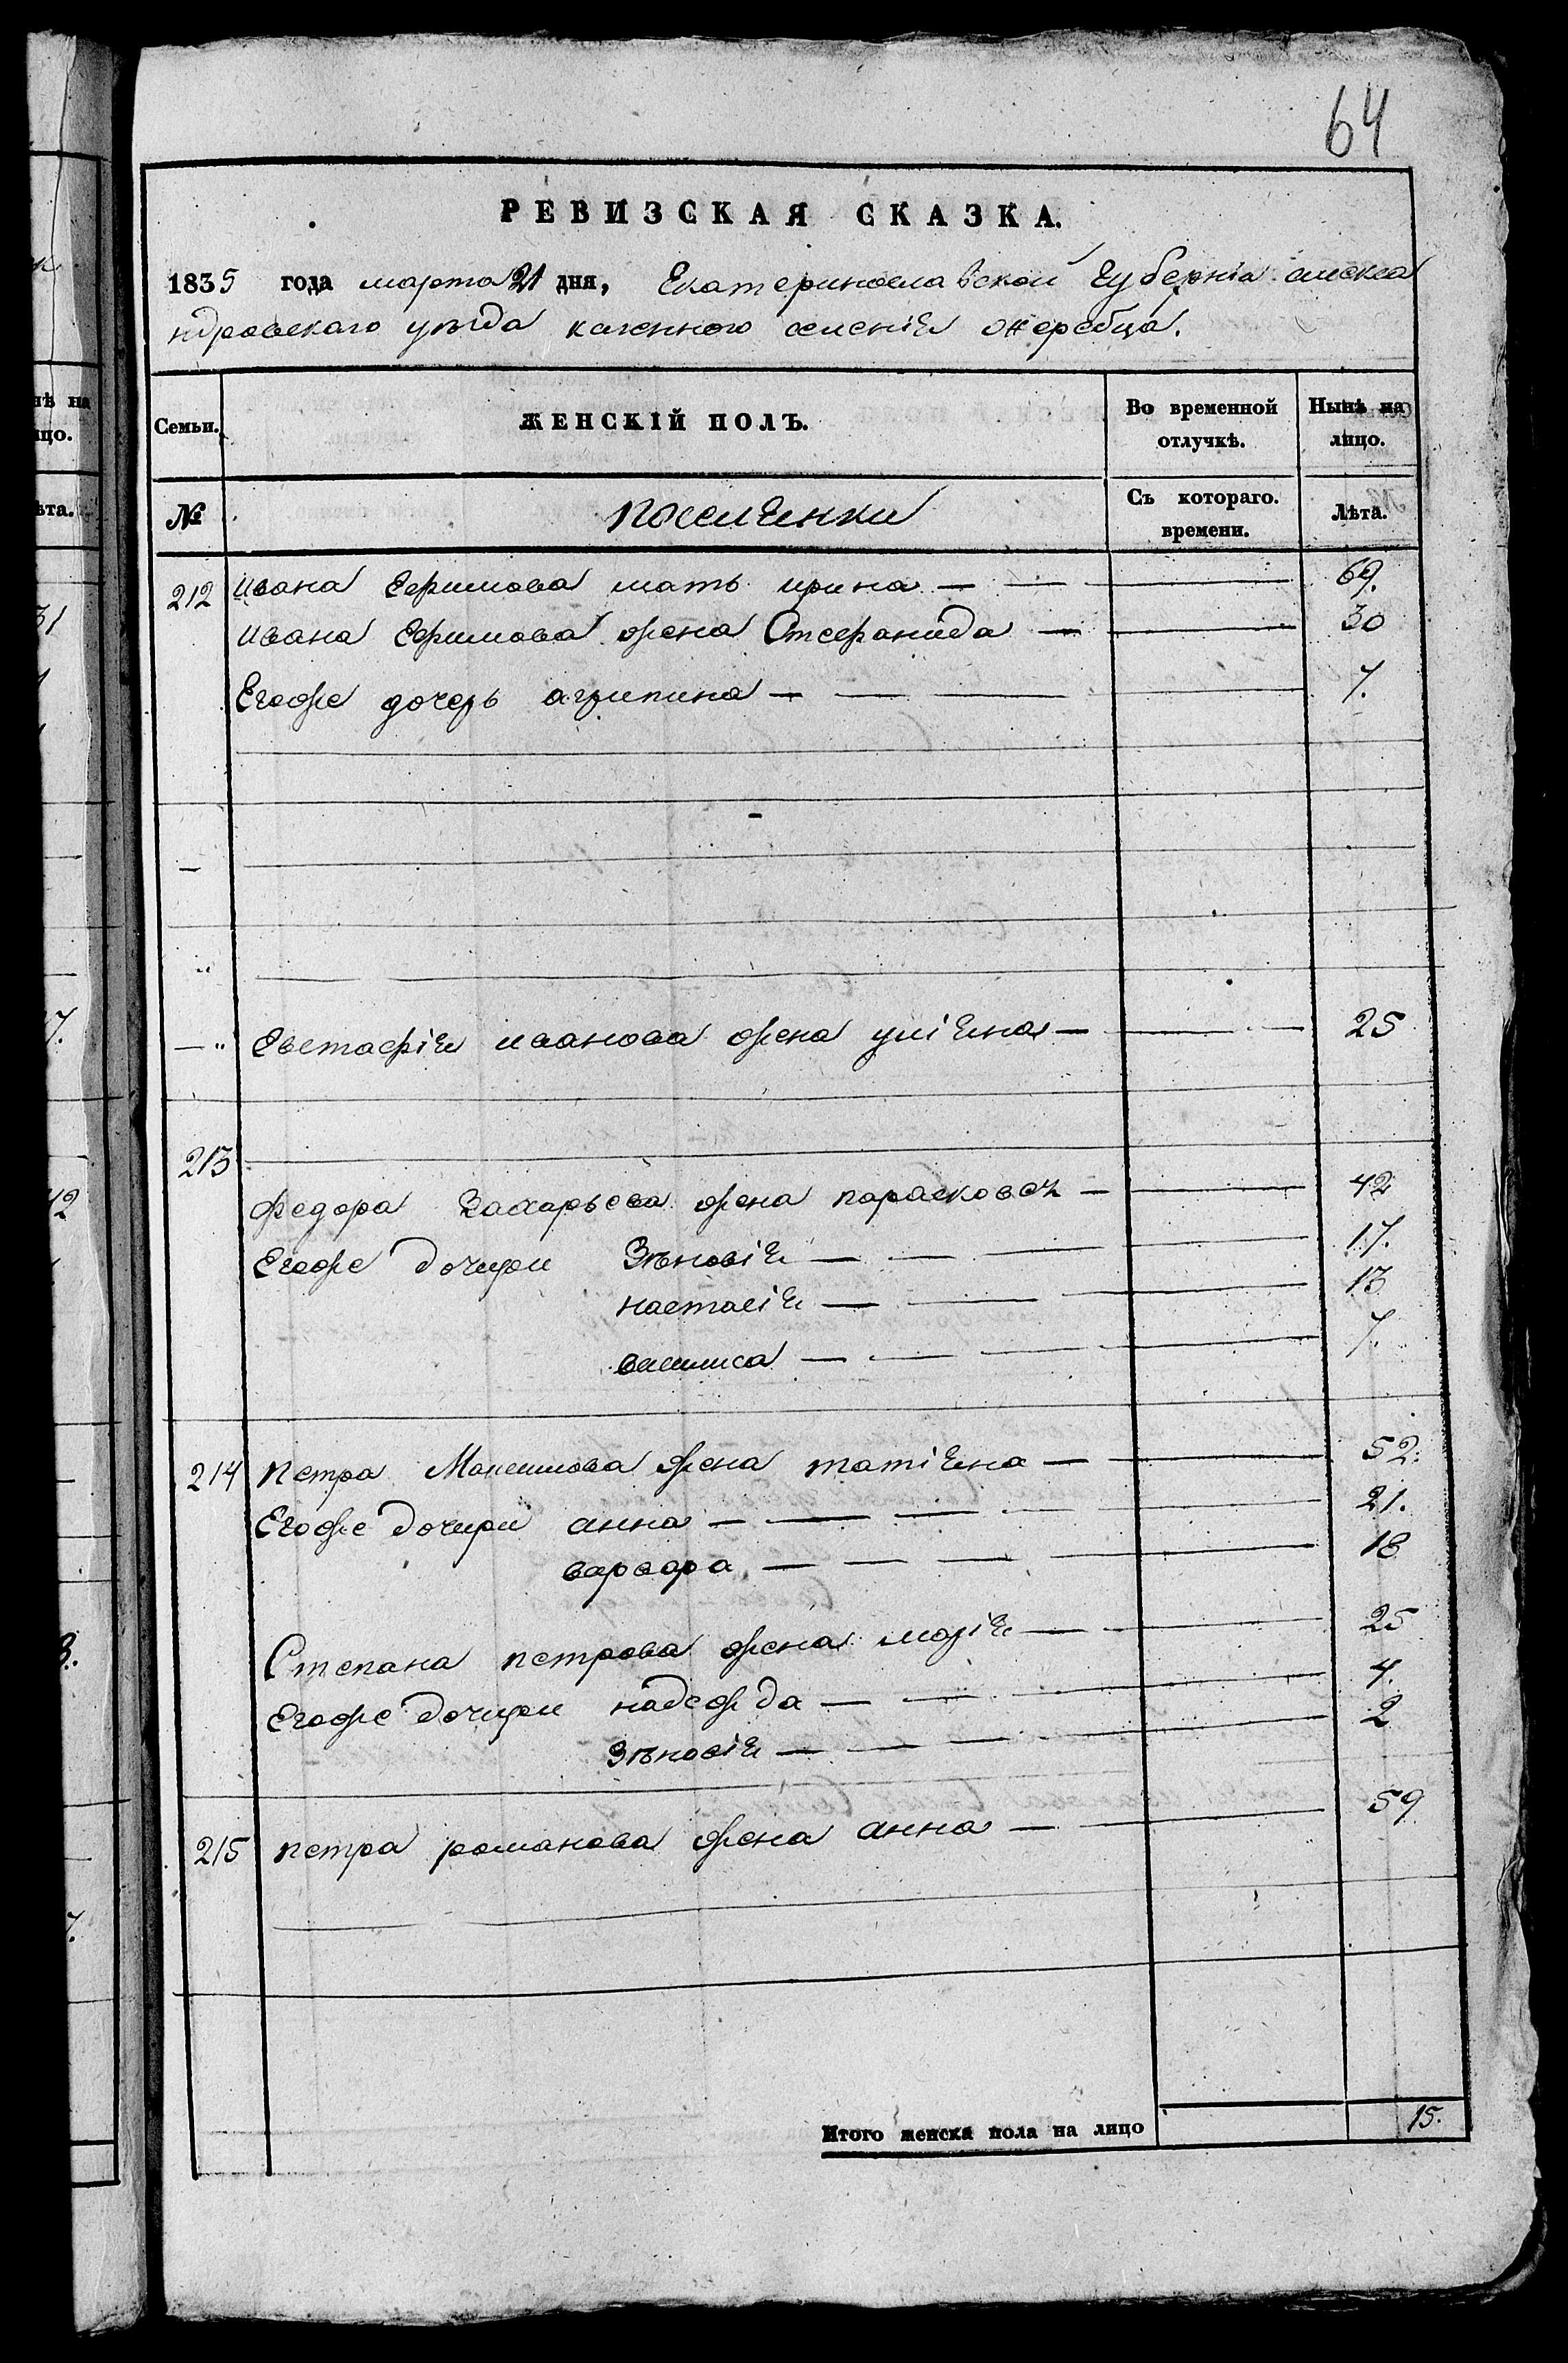 64
РЕВИЗСКАЯ СКАЗКА.
1835 года марта 21 дня, Екатеринославской Губернiи алекса
ндровскаго уѣзда казенного селенiя жеребца.
Семьи. ЖЕНСКІЙ ПОЛЪ. Во временной отлучкѣ. Нынѣ на лицо.
№ поселянки Съ котораго. времени. Лѣта.
212 Ивана Ефимова мать ирина — — — 69.
Ивана Ефимова жена Стефанида — — 30
Егоже дочерь агрипина — — — — 7.
— „ Евстафiя иванова жена улiяна — — — 25
213
Федора Захарьева жена парасковея — — 42
Егоже дочери Зѣновiя — — — — 17.
настасiя — — — 13
василиса — — — — 7.
214 петра Максимова жена татiяна — — 52.
Егоже дочери анна — — — — — 21.
варвара — — — — 18
Степана петрова жена марiя — — 25
Егоже дочери надежда — — — 4.
Зѣновiя — — — — 2
215 петра романова жена анна — — 59
Итого женска пола на лицо 15.
нѣ на
ицо.
ѣта.
31
7.
42
3.
7.